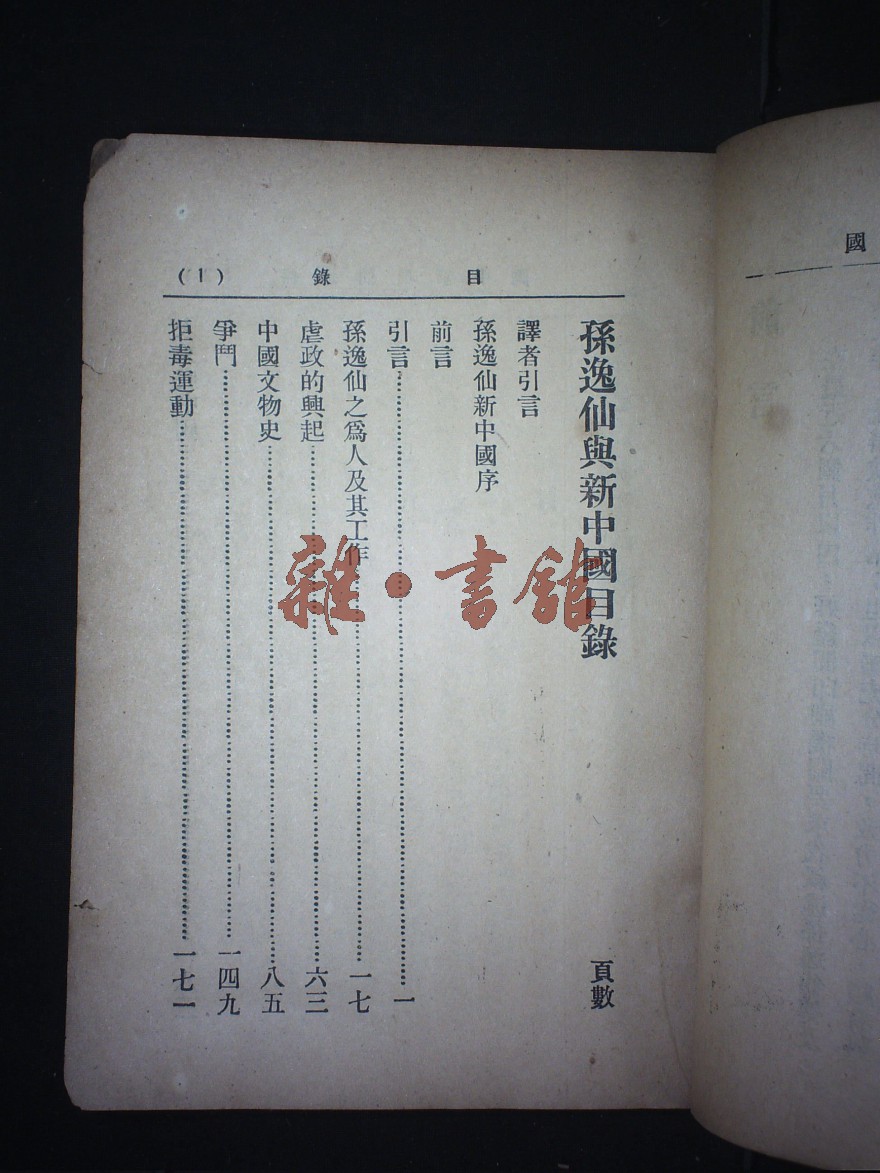 國
目錄 (1)
孫逸仙與新中國目錄 頁數
譯者引言
孫逸仙新中國序
前言
引言 一
孫逸仙之爲人及其工作 一七
虐政的興起 六三
中國文物史 八五
爭鬥 一四九
拒毒運動 一七一
雜·書館